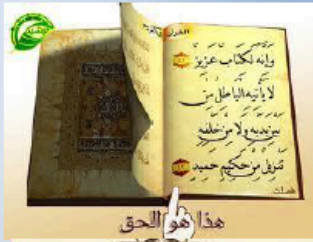 وإنه لكتاب عزيز
لا يأتيه الباطل من
بين يديه ولا من خلفه
تنزيل من حكيم حميد
فصلت
هذا هو الحق